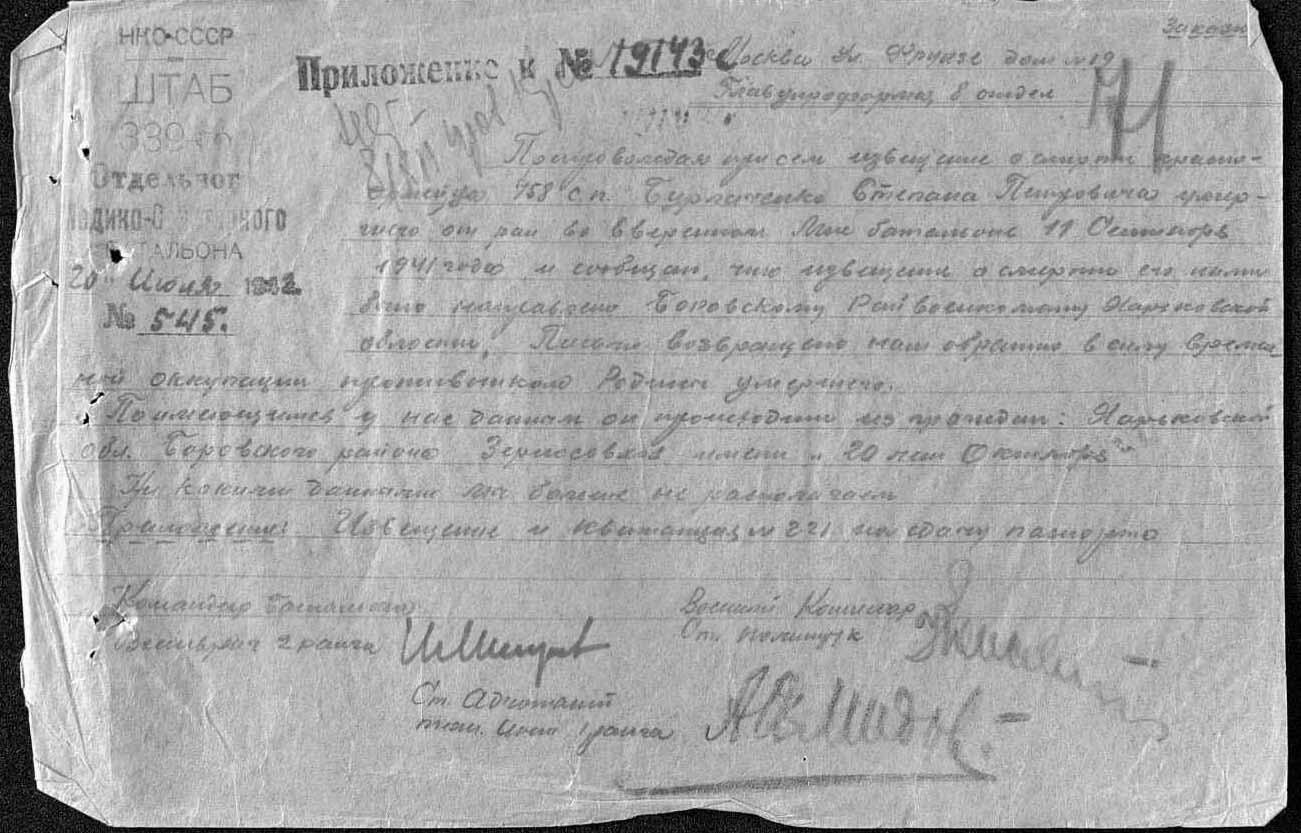 Заказн
НКО-СССР
ШТАБ
339
Отдельног
ТАЛЬОНА
20 " Июля 1942
№ 545.
Приложение к № 19143 с
Москва ул. Фрунзе дом №19
Главупроформ 8 отдел
Препровождая при сем извещение о смерти красно-
армейца 758 с.п. Бурлаченко Степана Петровича умер-
шего от ран во вверенном мне батальоне 11 Сентября
1941 года и сообщаю, что извещение о смерти его нами
было направлено Боровскому Райвоенкомату Харьковской
области. Письмо возвращено нам обратно в силу времен
ной оккупации противником Родины умершего.
По имеющимся у нас данным он происходит из граждан: Харьковской
обл. Боровского района Зерносовхоз имени " 20 лет Октября"
Ни какими данными мы больше не располагаем
Приложение: Извещение и квитанция № 221 на сдачу паспорта
Командир батальона
Военврач 2 ранга
Военный Комиссар
Ст. политрук
Ст. Адъютант
техн. Инт 1 ранга